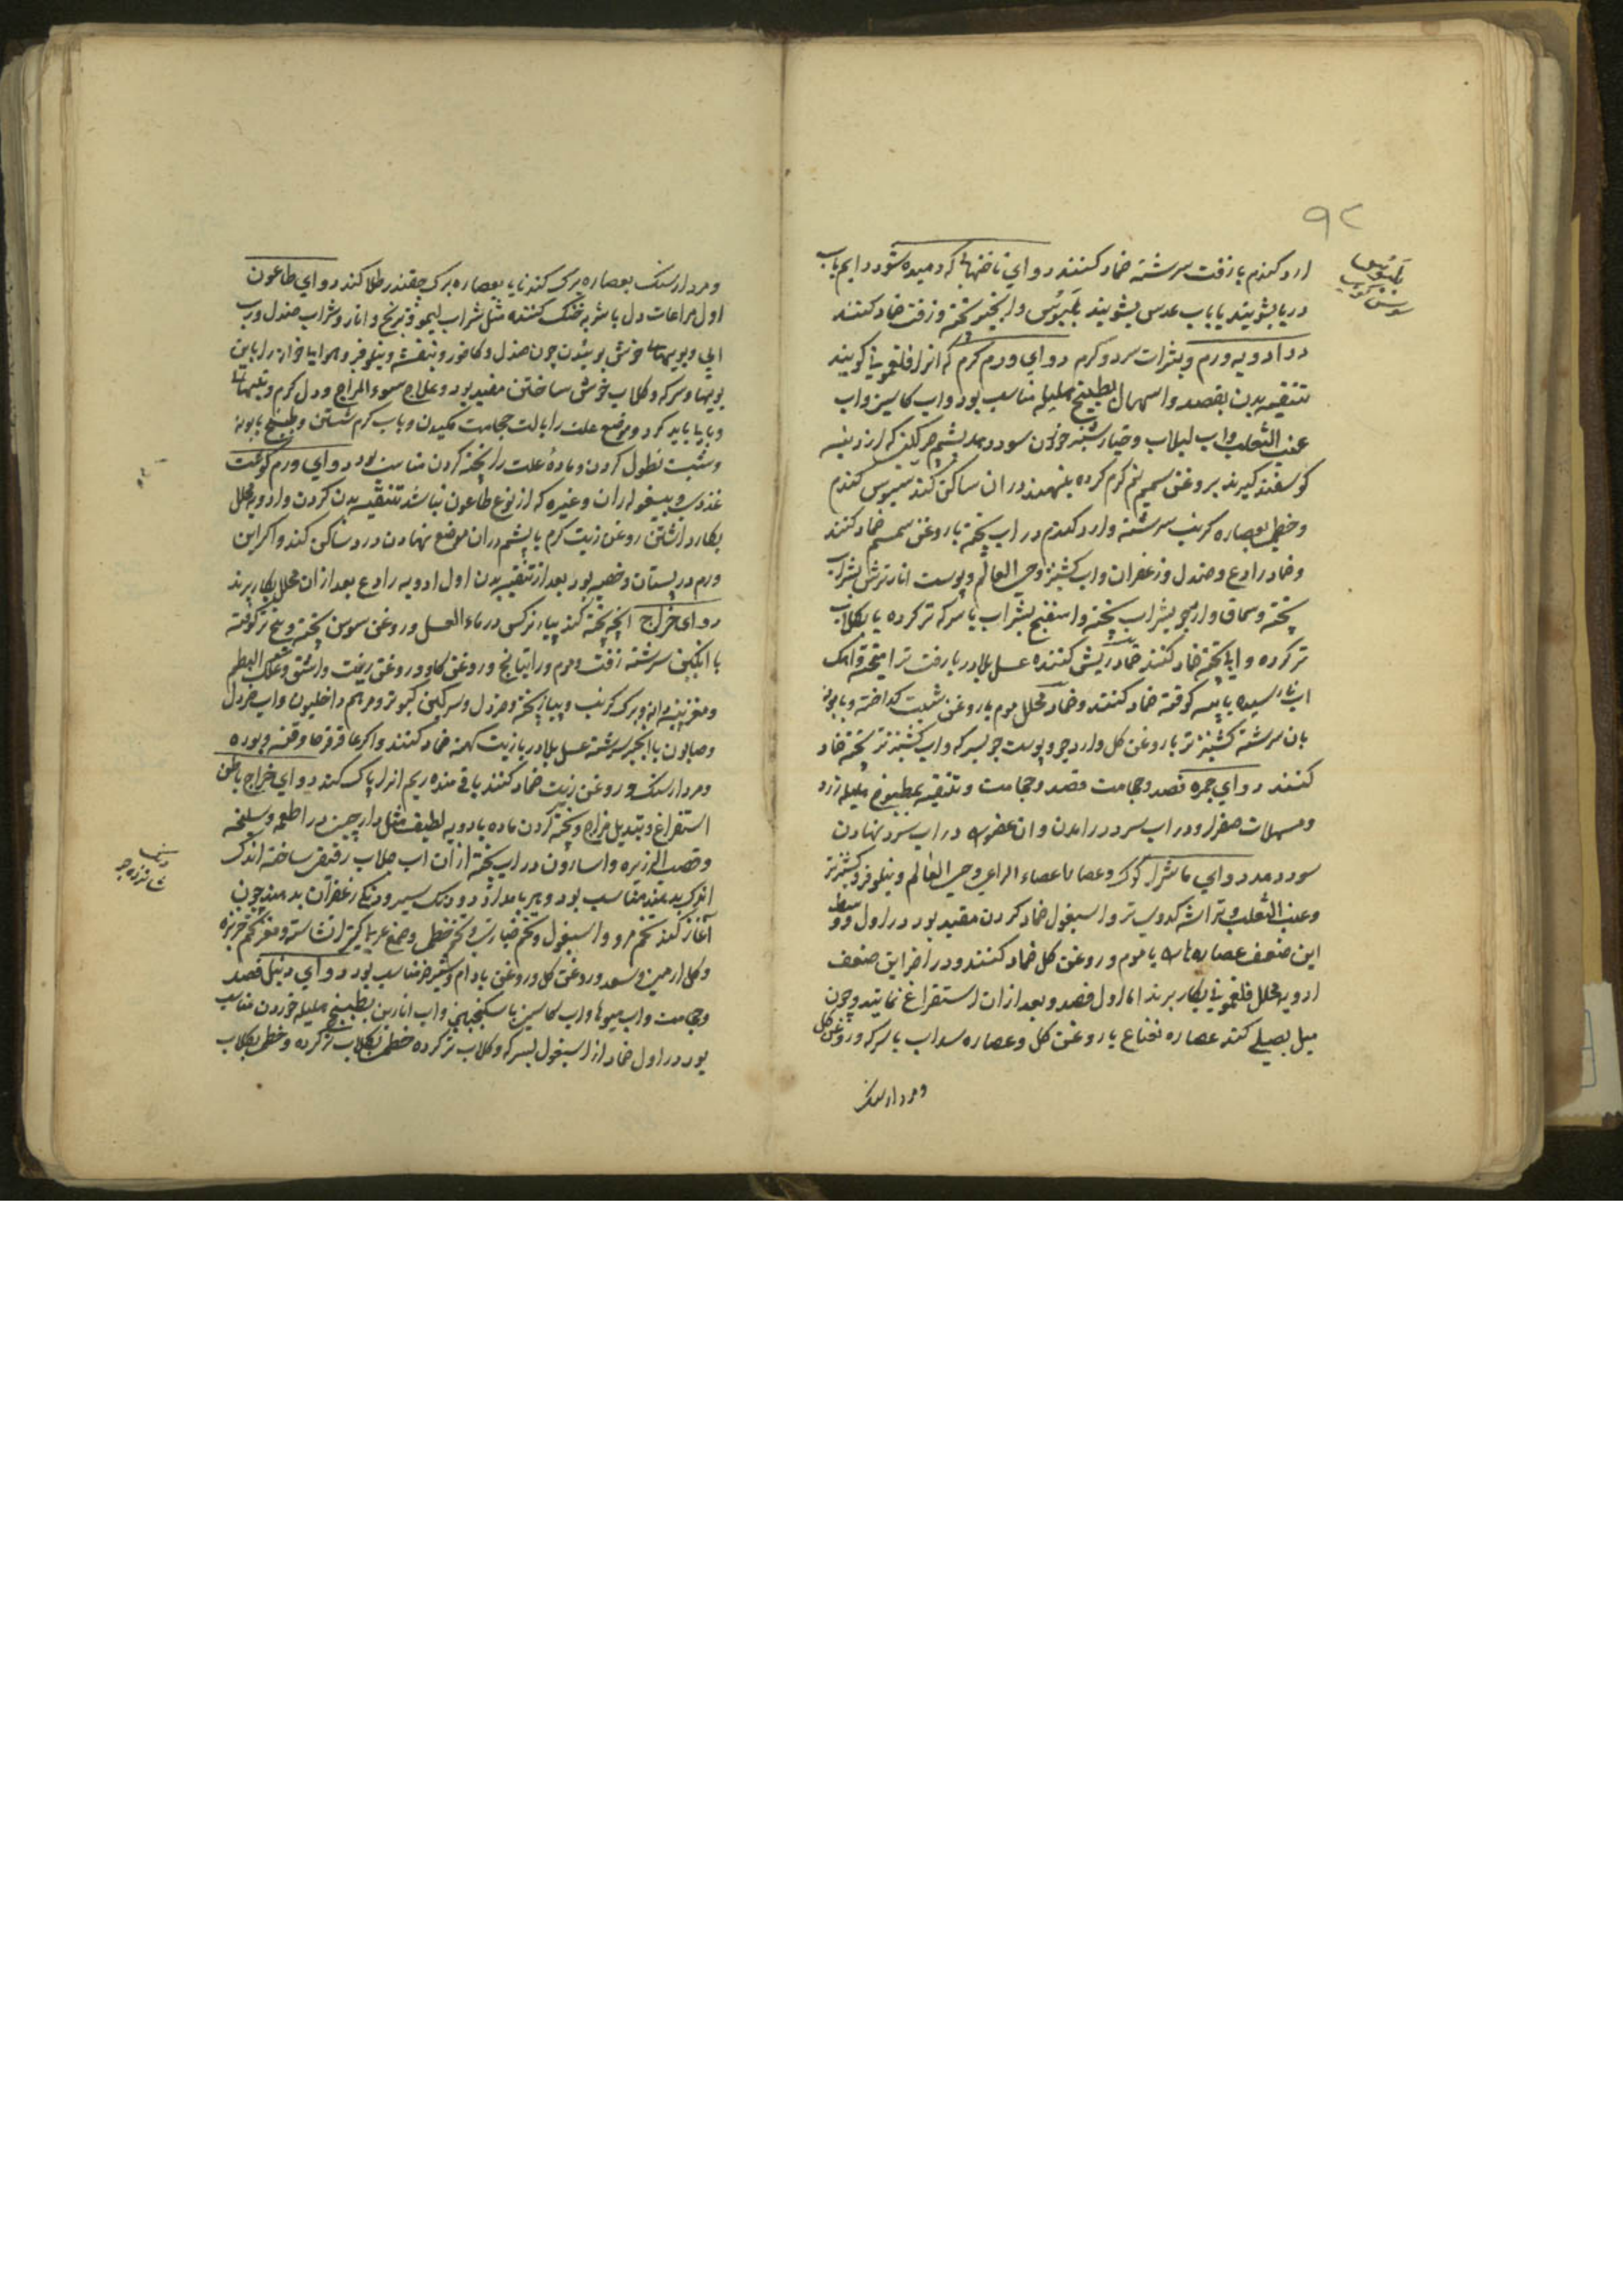 ۹۲
بلبوس
ارد کندم بازفت سرشته ضماد کنند دوای ناخنها که دمیده شود دایم باب
دریا بشویند یا باب عدس بشویند بلبوس و انجیر پخته و زفت ضماد کنند
در ادویه ورم و بثرات سرد و کرم دوای ورم کرم که انرا فلغمونی کویند
تنقیه بدن بفصد و اسهال بطبیخ هلیله مناسب بود و اب کاسنی و اب
عنب الثعلب و اب لبلاب و خیارشنبر خوردن سود دهد پشم چرکن که از دنبه
کوسفند کیرند بروغن سمسم کرم کرده بنهند دران ساکن کند سبوس کندم
و خطمی بعصاره کرنب سرشته و ارد کندم در اب پخته با روغن سمسم ضماد کنند
و ضماد رادع و صندل و زعفران و اب کشنیز و حی العالم و پوست انار ترش بشراب
پخته و سماق و ارد جو بشراب پخته و اسفنج بشراب یا سرکه تر کرده یا بکلاب
تر کرده و ابا پخته ضماد کنند ضماد ریش کننده عسل بلادر با زفت تر امیخته و اهک
اب نارسیده با پیه کوفته ضماد کنند و ضماد محلل موم با روغن شبت کداخته و بابونه
بان سرشته کشنیز تر با روغن کل و ارد جو و پوست جو بسرکه و اب کشنیز تر پخته ضماد
کنند دوای جمره فصد و حجامت فصد و حجامت و تنقیه بمطبوخ هلیله زرد
و مسهلات صفرا و در اب سرد درامدن و ان عضو را در اب سرد نهادن
سود دهد دوای ماشرا کوک و عصا یا عصاء الراعی و حی العالم و نیلوفر و کشنیز تر
و عنب الثعلب و تراشه کدوی تر و اسبغول ضماد کردن مفید بود در اول و وسط
این ضعف عصاره ها را با موم و روغن کل ضماد کنند و در اخر این ضعف
ادویه محلل فلغمونی بکار برند اما اول فصد و بعد ازان استفراغ نمایند و چون
میل بصلبی کند عصاره نعناع با روغن کل و عصاره سداب با سرکه و روغن کل
و مردارسنک
و مردارسنک بعصاره برک کندنا یا بعصاره برک چقندر طلا کند دوای طاعون
اول مراعات دل باشربه خنک کننده مثل شراب لیمو و ترنج و انار و شراب صندل و رب
ابی و بویهاء خوش بوئیدن چون صندل و کافور و بنفشه و نیلوفر و هوا یا خانه را باین
بویها و سرکه و کلاب خوش ساختن مفید بود و علاج سوء المزاج و دل کرم و تبهاء
وبا باید کرد و موضع علت را بالت حجامت مکیدن و باب کرم شستن و طبیخ بابونه
و شبت نطول کردن و ماده علت را پخته کردن مناسب بود دوای ورم کوشت
غددی و بیغوله ران و غیره که از نوع طاعون نباشد تنقیه بدن کردن و ادویه محلل
بکار داشتن روغن زیت کرم با پشم دران موضع نهادن درد ساکن کند و اکر این
ورم در پستان و خصیه بود بعد از تنقیه بدن اول ادویه رادع بعد ازان محلل بکار برند
دوای خراج انچه پخته کند پیاز نرکس در ماء العسل و روغن سوسن پخته و بیخ تر کوفته
با انکبین سرشته زفت و موم و راتیانج و روغن کاو و روغن زفت و اشق و علک البطم
و مغز پنبه دانه و برک کرنب و پیاز پخته و خردل و سرکین کبوتر و مرهم داخلیون و اب خردل
و صابون با انجیر سرشته عسل بلادر با زیت کهنه ضماد کنند و اکر عاقرقرحا و قنه و بوره
و مردارسنک و روغن زیت ضماد کنند باقی مانده ریم انرا پاک کند دوای خراج باطن
استفراغ و تبدیل مزاج و پخته کردن ماده بادویه لطیف مثل دارچین در اطعمه و سلیخه
و قصب الذریره و اسارون در اب پخته ازان اب جلاب رقیق ساخته اندک
اندک بدهند مناسب بود و هر بامداد دو دنک سیر و دنکی زعفران بدهند چون
آغاز کند تخم مرو و اسبغول و تخم خیارین و تخم خطمی و صمغ عربی کتیرا نشاسته و مغز تخم خربزه
و کل ارمنی و سعد و روغن کل و روغن بادام و شیر خر مناسب بود دوای دنبل فصد
و حجامت و اب میوها و اب کاسنی با سکنجبین و اب انارین بطبیخ هلیله خوردن مناسب
بود در اول ضماد از اسبغول بسرکه و کلاب تر کرده خطمی بکلاب تر کرده و خطمی بکلاب